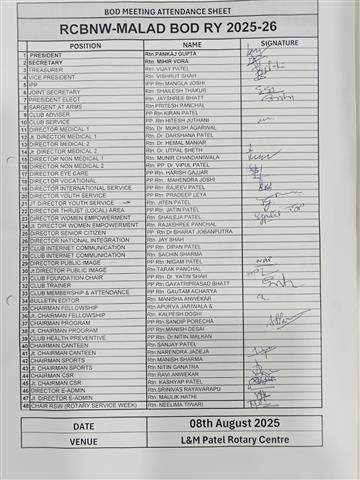 BOD MEETING ATTENDANCE SHEET
RCBNW-MALAD BOD RY 2025-26
POSITION NAME SIGNATURE
1 PRESIDENT Rtn.PANKAJ GUPTA
2 SECRETARY Rtn. MIHIR VORA
3 TREASURER Rtn. VIJAY PATEL
4 VICE PRESIDENT Rtn. VISHRUT SHAH
5 IPP IPP Rtn.MANGLA JOSHI
6 JOINT SECRETARY Rtn. SHAILESH THAKUR
7 PRESIDENT ELECT Rtn. JAYSHREE BHATT
8 SARGENT AT ARMS Rtn.PRITESH PANCHAL
9 CLUB ADVISER PP Rtn.KIRAN PATEL
10 CLUB SERVICE PP. Rtn.HITESH JUTHANI
11 DIRECTOR MEDICAL 1 Rtn. Dr. MUKESH AGARWAL
12 Jt. DIRECTOR MEDICAL 1 Rtn. Dr. DARSHANA PATEL
13 DIRECTOR MEDICAL 2 Rtn. Dr. HEMAL MANIAR
14 Jt. DIRECTOR MEDICAL 2 Rtn. Dr. UTPAL SHETH
15 DIRECTOR NON MEDICAL 1 Rtn. MUNIR CHANDANIWALA
16 DIRECTOR NON MEDICAL 2 Rtn. PP Dr. VIPUL PATEL
17 DIRECTOR EYE CARE PP Rtn. HARISH GAJJAR
18 DIRECTOR VOCATIONAL PP Rtn. MAHENDRA JOSHI
19 DIRECTOR INTERNATIONAL SERVICE PP Rtn. RAJEEV PATEL
20 DIRECTOR YOUTH SERVICE PP Rtn. PRADEEP LEYA
21 JT DIRECTOR YOUTH SERVICE Rtn. JITEN PATEL
22 DIRECTOR THRUST (LOCAL) AREA PP Rtn. JATIN PATEL
23 DIRECTOR WOMEN EMPOWERMENT Rtn. SHAILEJA PATEL
24 Jt. DIRECTOR WOMEN EMPOWERMENT Rtn. RAJASHREE PANCHAL
25 DIRECTOR SENIOR CITIZEN PP Rtn.Dr.BHARAT JOBANPUTRA
26 DIRECTOR NATIONAL INTEGRATION Rtn. JAY SHAH
27 CLUB INTERNET COMMUNICATION PP Rtn. DIPAN PATEL
28 CLUB INTERNET COMMUNICATION Rtn. SACHIN SHARMA
29 DIRECTOR PUBLIC IMAGE PP Rtn. NIGAM PATEL
30 Jt.DIRECTOR PUBLIC IMAGE Rtn.TARAK PANCHAL
31 CLUB FOUNDATION CHAIR PP Rtn. Dr. YATIN SHAH
32 CLUB TRAINER PP Rtn.GAYATRIPRASAD BHATT
33 CLUB MEMBERSHIP & ATTENDANCE PP Rtn. GAUTAM ACHARYA
34 BULLETIN EDITOR Rtn. MANISHA ANWEKAR
35 CHAIRMAN FELLOWSHIP Rtn.APURVA JARIWALA &
36 Jt. CHAIRMAN FELLOWSHIP Rtn. KALPESH DOSHI
37 CHAIRMAN PROGRAM PP Rtn.SANDIP PORECHA
38 Jt. CHAIRMAN PROGRAM PP Rtn.MANISH DESAI
39 CLUB HEALTH PREVENTIVE PP Rtn.Dr.NITIN MALKAN
40 CHAIRMAN CANTEEN Rtn.SANJAY PATEL
41 Jt. CHAIRMAN CANTEEN Rtn. NARENDRA JADEJA
42 CHAIRMAN SPORTS Rtn. MANISH PATEL
43 Jt. CHAIRMAN SPORTS Rtn. NITIN GANATRA
44 CHAIRMAN CSR Rtn. RAVI ANWEKAR
45 Jt. CHAIRMAN CSR Rtn. KASHYAP PATEL
46 DIRECTOR E-ADMIN Rtn.SRINIVAS RAYAVARAPU
47 Jt. DIRECTOR E-ADMIN Rtn. MAULIK HATHI
48 CHAIR RSW (ROTARY SERVICE WEEK) Rtn. NEELIMA TIWARI
DATE 08th August 2025
VENUE L&M Patel Rotary Centre